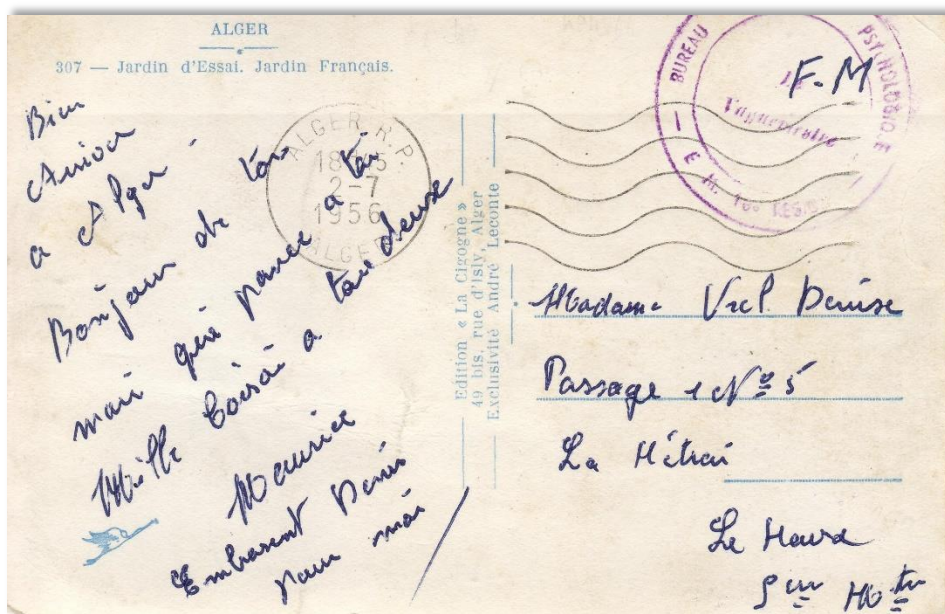 ALGER
307 — Jardin d'Essai. Jardin Français.
Bien
Arriver
a Alger.
Bonjour de ton
mari qui pense a toi
Mille Boisoi a tou deuse
Maurice
Embrassent Denis
pour moi
ALGER R.P.
2-7
1956
ALGER
Edition « La Cigogne »
49 bis, rue d'Isly, Alger
Exclusivité André Leconte
BUREAU PSYCHOLOGIQUE
F.M
E. M. 10e
Madame Denise
Passage 1 Nº 5
La
Le Havre